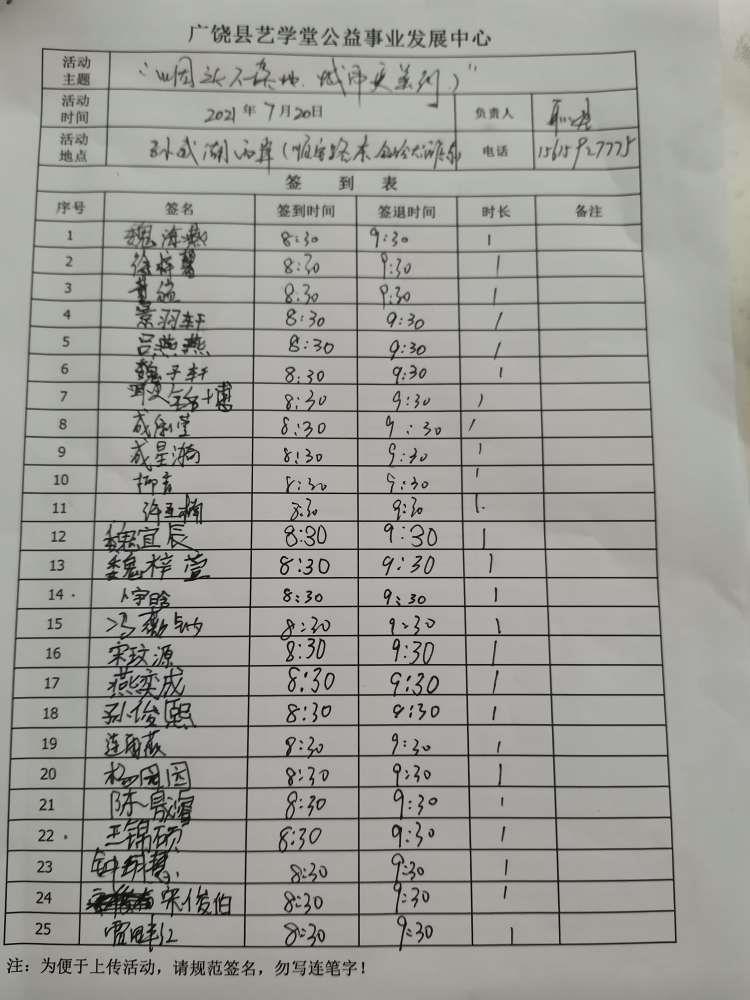 广饶县艺学堂公益事业发展中心
活动主题 "烟头不落地 城市更美丽"
活动时间 2021年7月20日 负责人
活动地点 孙武湖西岸( 电话 15615927775
签到表
序号 签名 签到时间 签退时间 时长 备注
1 魏海燕 8:30 9:30 1
2 徐梓馨 8:30 9:30 1
3 8:30 9:30 1
4 景羽轩 8:30 9:30 1
5 吕燕燕 8:30 9:30 1
6 魏子轩 8:30 9:30 1
7 8:30 9:30 1
8 8:30 9:30 1
9 成星漪 8:30 9:30 1
10 8:30 9:30 1
11 许亚楠 8:30 9:30 1
12 魏宜辰 8:30 9:30 1
13 魏梓萱 8:30 9:30 1
14 8:30 9:30 1
15 8:30 9:30 1
16 宋玟源 8:30 9:30 1
17 燕奕成 8:30 9:30 1
18 孙俊熙 8:30 9:30 1
19 8:30 9:30 1
20 杨园园 8:30 9:30 1
21 8:30 9:30 1
22 王锦硕 8:30 9:30 1
23 8:30 9:30 1
24 宋俊伯 8:30 9:30 1
25 8:30 9:30 1
注:为便于上传活动,请规范签名,勿写连笔字!